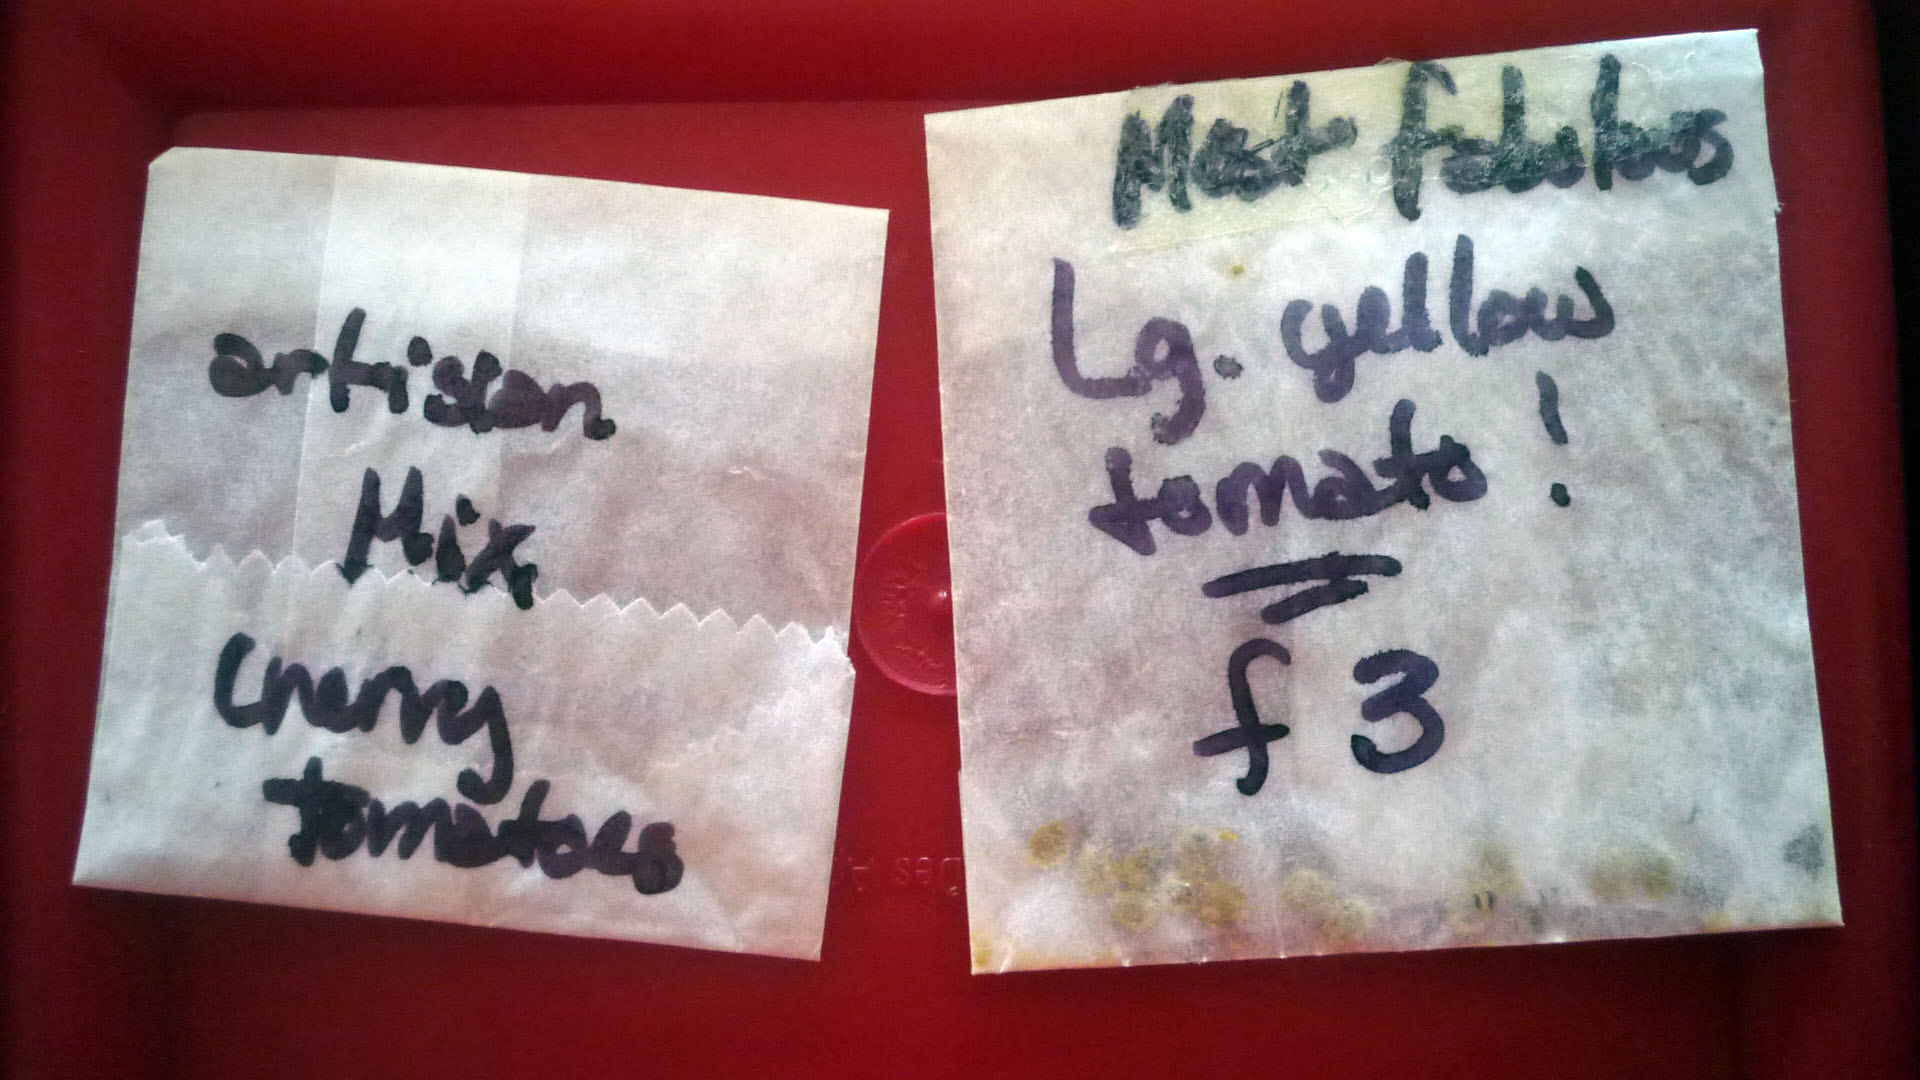 artisan
Mix
Cherry
tomatoes
Most fabulous
Lg. yellow
tomato!
f 3